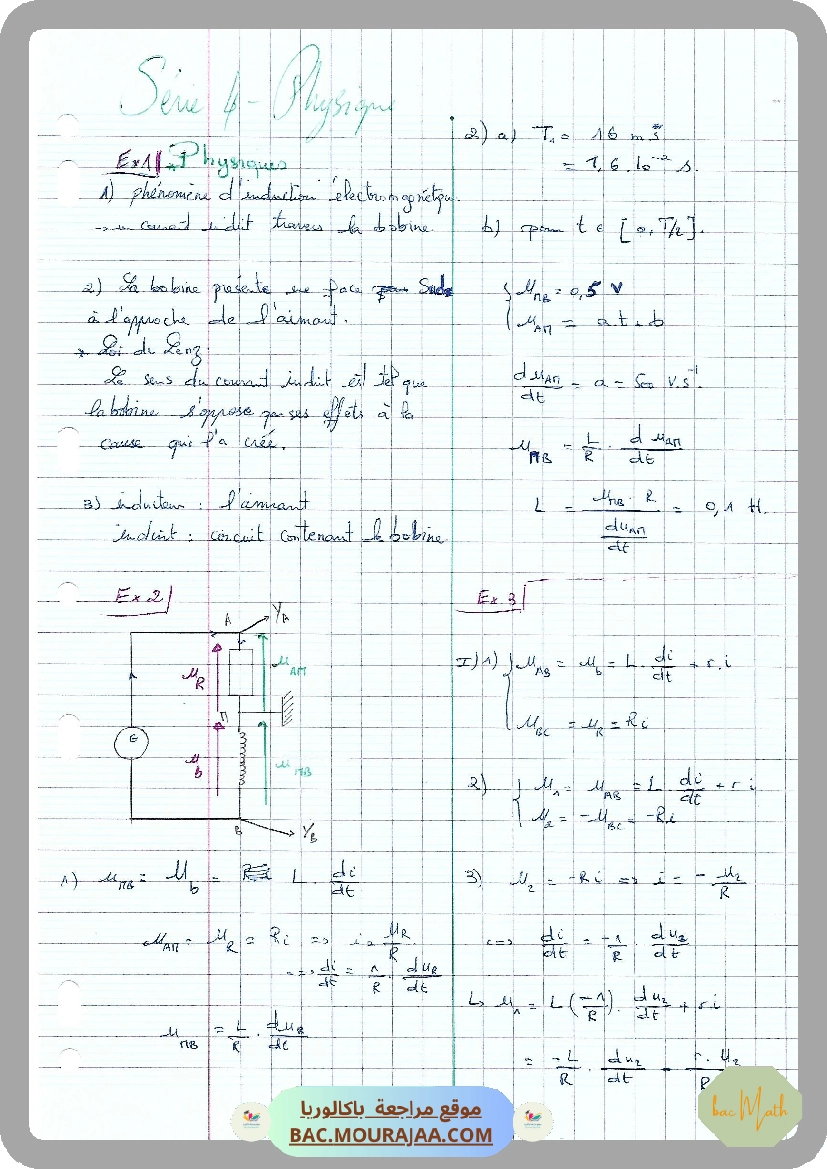 Série 4 - Physique
Ex1 Physiques
1) phénomène d'induction électromagnétique.
→ un courant induit travers la bobine.
2) La bobine présente une face Sud
à l'approche de l'aimant.
* Loi de Lenz:
Le sens du courant induit est tel que
la bobine s'oppose par ses effets à la
cause qui l'a créé.
3) inducteur : l'aimant
induit : circuit contenant la bobine
Ex 2
A Y_A
u_R u_AM
M
G
u_b u_MB
B Y_B
1) u_MB = u_b = L . di/dt
u_AM = u_R = Ri => i = u_R/R
<=> di/dt = 1/R . du_R/dt
u_MB = L/R . du_R/dt
2) a) T_1 = 16 ms
= 1,6. 10^-2 s.
b) pour t ∈ [0, T/2].
{ u_MB = 0,5 V
u_AM = at + b
du_AM/dt = a = 500 V.s^-1.
u_MB = L/R . du_AM/dt
L = u_MB . R / (du_AM/dt) = 0,1 H.
Ex 3
I) 1) { u_AB = u_b = L . di/dt + r.i
u_BC = u_R = Ri
2) { u_1 = u_AB = L di/dt + r i
u_2 = -u_BC = -Ri
3) u_2 = -Ri => i = - u_2/R
<=> di/dt = -1/R . du_2/dt
↳ u_1 = L(-1/R) . du_2/dt + r.i
= -L/R . du_2/dt - r.u_2/R
موقع مراجعة باكالوريا
BAC.MOURAJAA.COM
bac Math